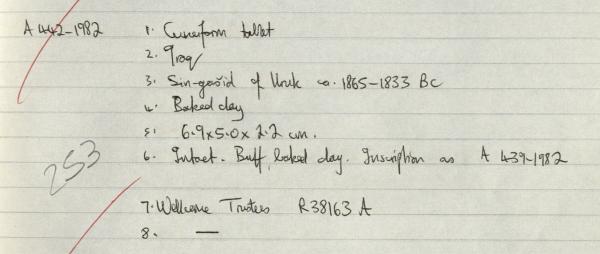 A 442-1982 1. Cuneiform tablet
2. Iraq
3. Sin-gašid of Uruk ca. 1865-1833 BC
4. Baked clay
5. 6.9x5.0x2.2 cm.
6. Intact. Buff, baked clay. Inscription as A 439-1982
253
7. Wellcome Trustees R38163 A
8. —